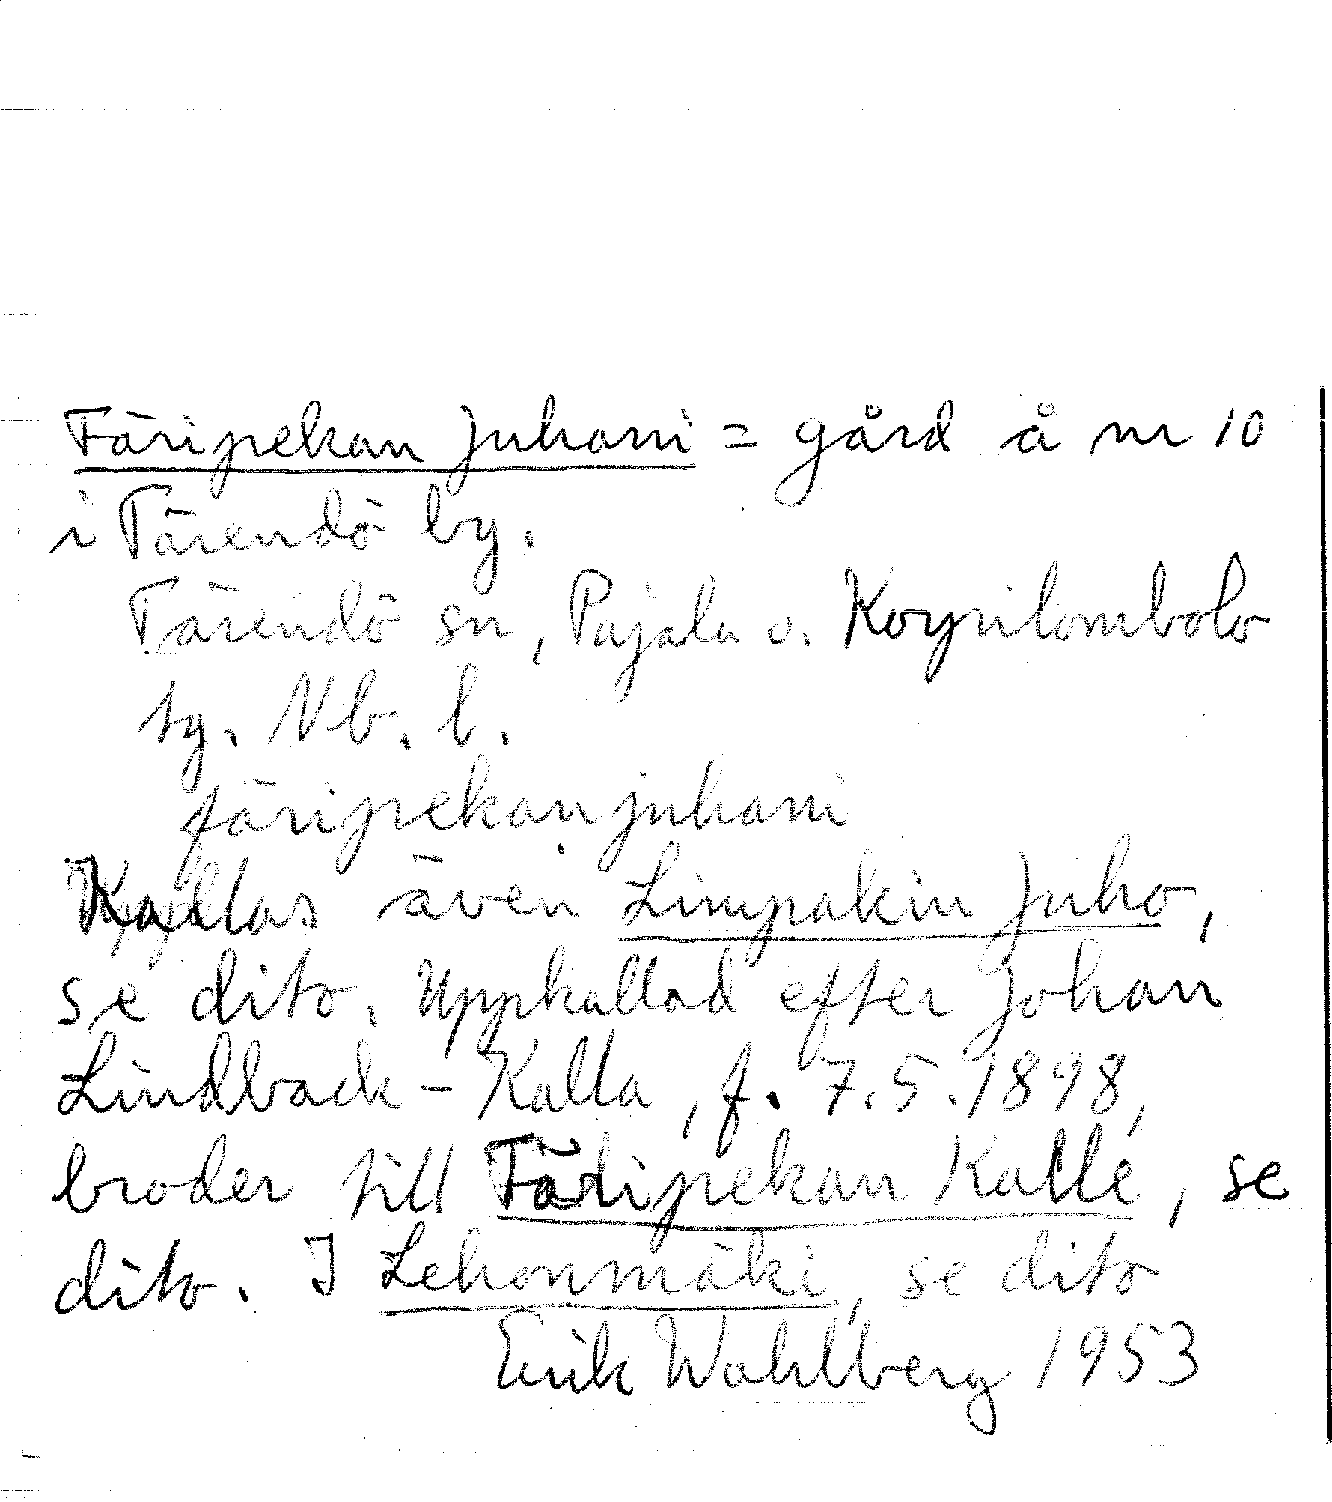 Färipekan Juhani = gård å nr 10
i Tärendö by.
Tärendö sn, Pajala o. Korpilombolo
tg. Nb. l.
färipekan juhani
Kallas även Limpakin Juho,
se dito. Uppkallad efter Johan
Lindback-Kalla, f. 7.5.1898,
broder till Färipekan Kalle, se
dito. I Lehonmäki, se dito
Erik Wahlberg 1953